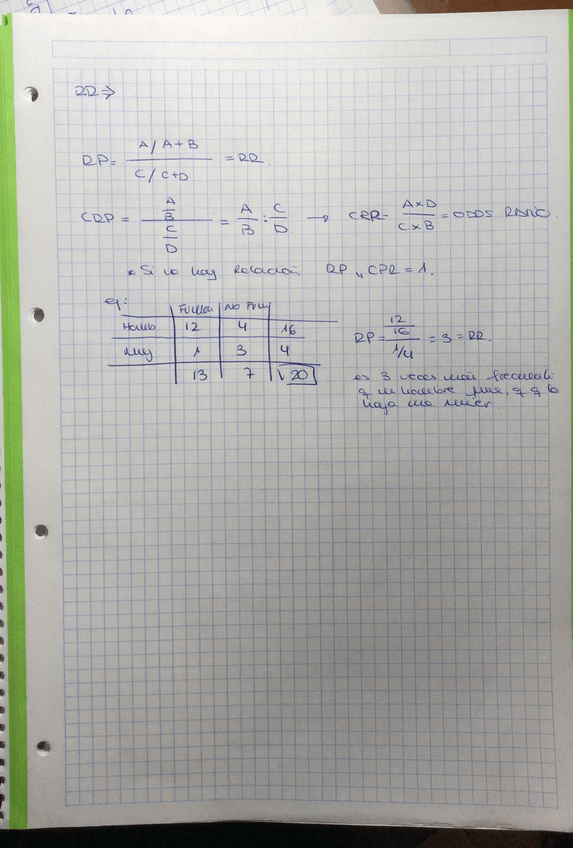 RR ⇒
RP = (A / A+B) / (C / C+D) = RR
CRP = (A/B) / (C/D) = A/B : C/D → CRR = A×D / C×B = ODDS RATIO.
* Si no hay Relación RP y CPR = 1.
eg:
Fuman | No Fum
Homb | 12 | 4 | 16
Muj | 1 | 3 | 4
13 | 7 | 20
RP = (12/16) / (1/4) = 3 = RR.
es 3 veces más frecuente
q un hombre fume, q q lo
haga una mujer.